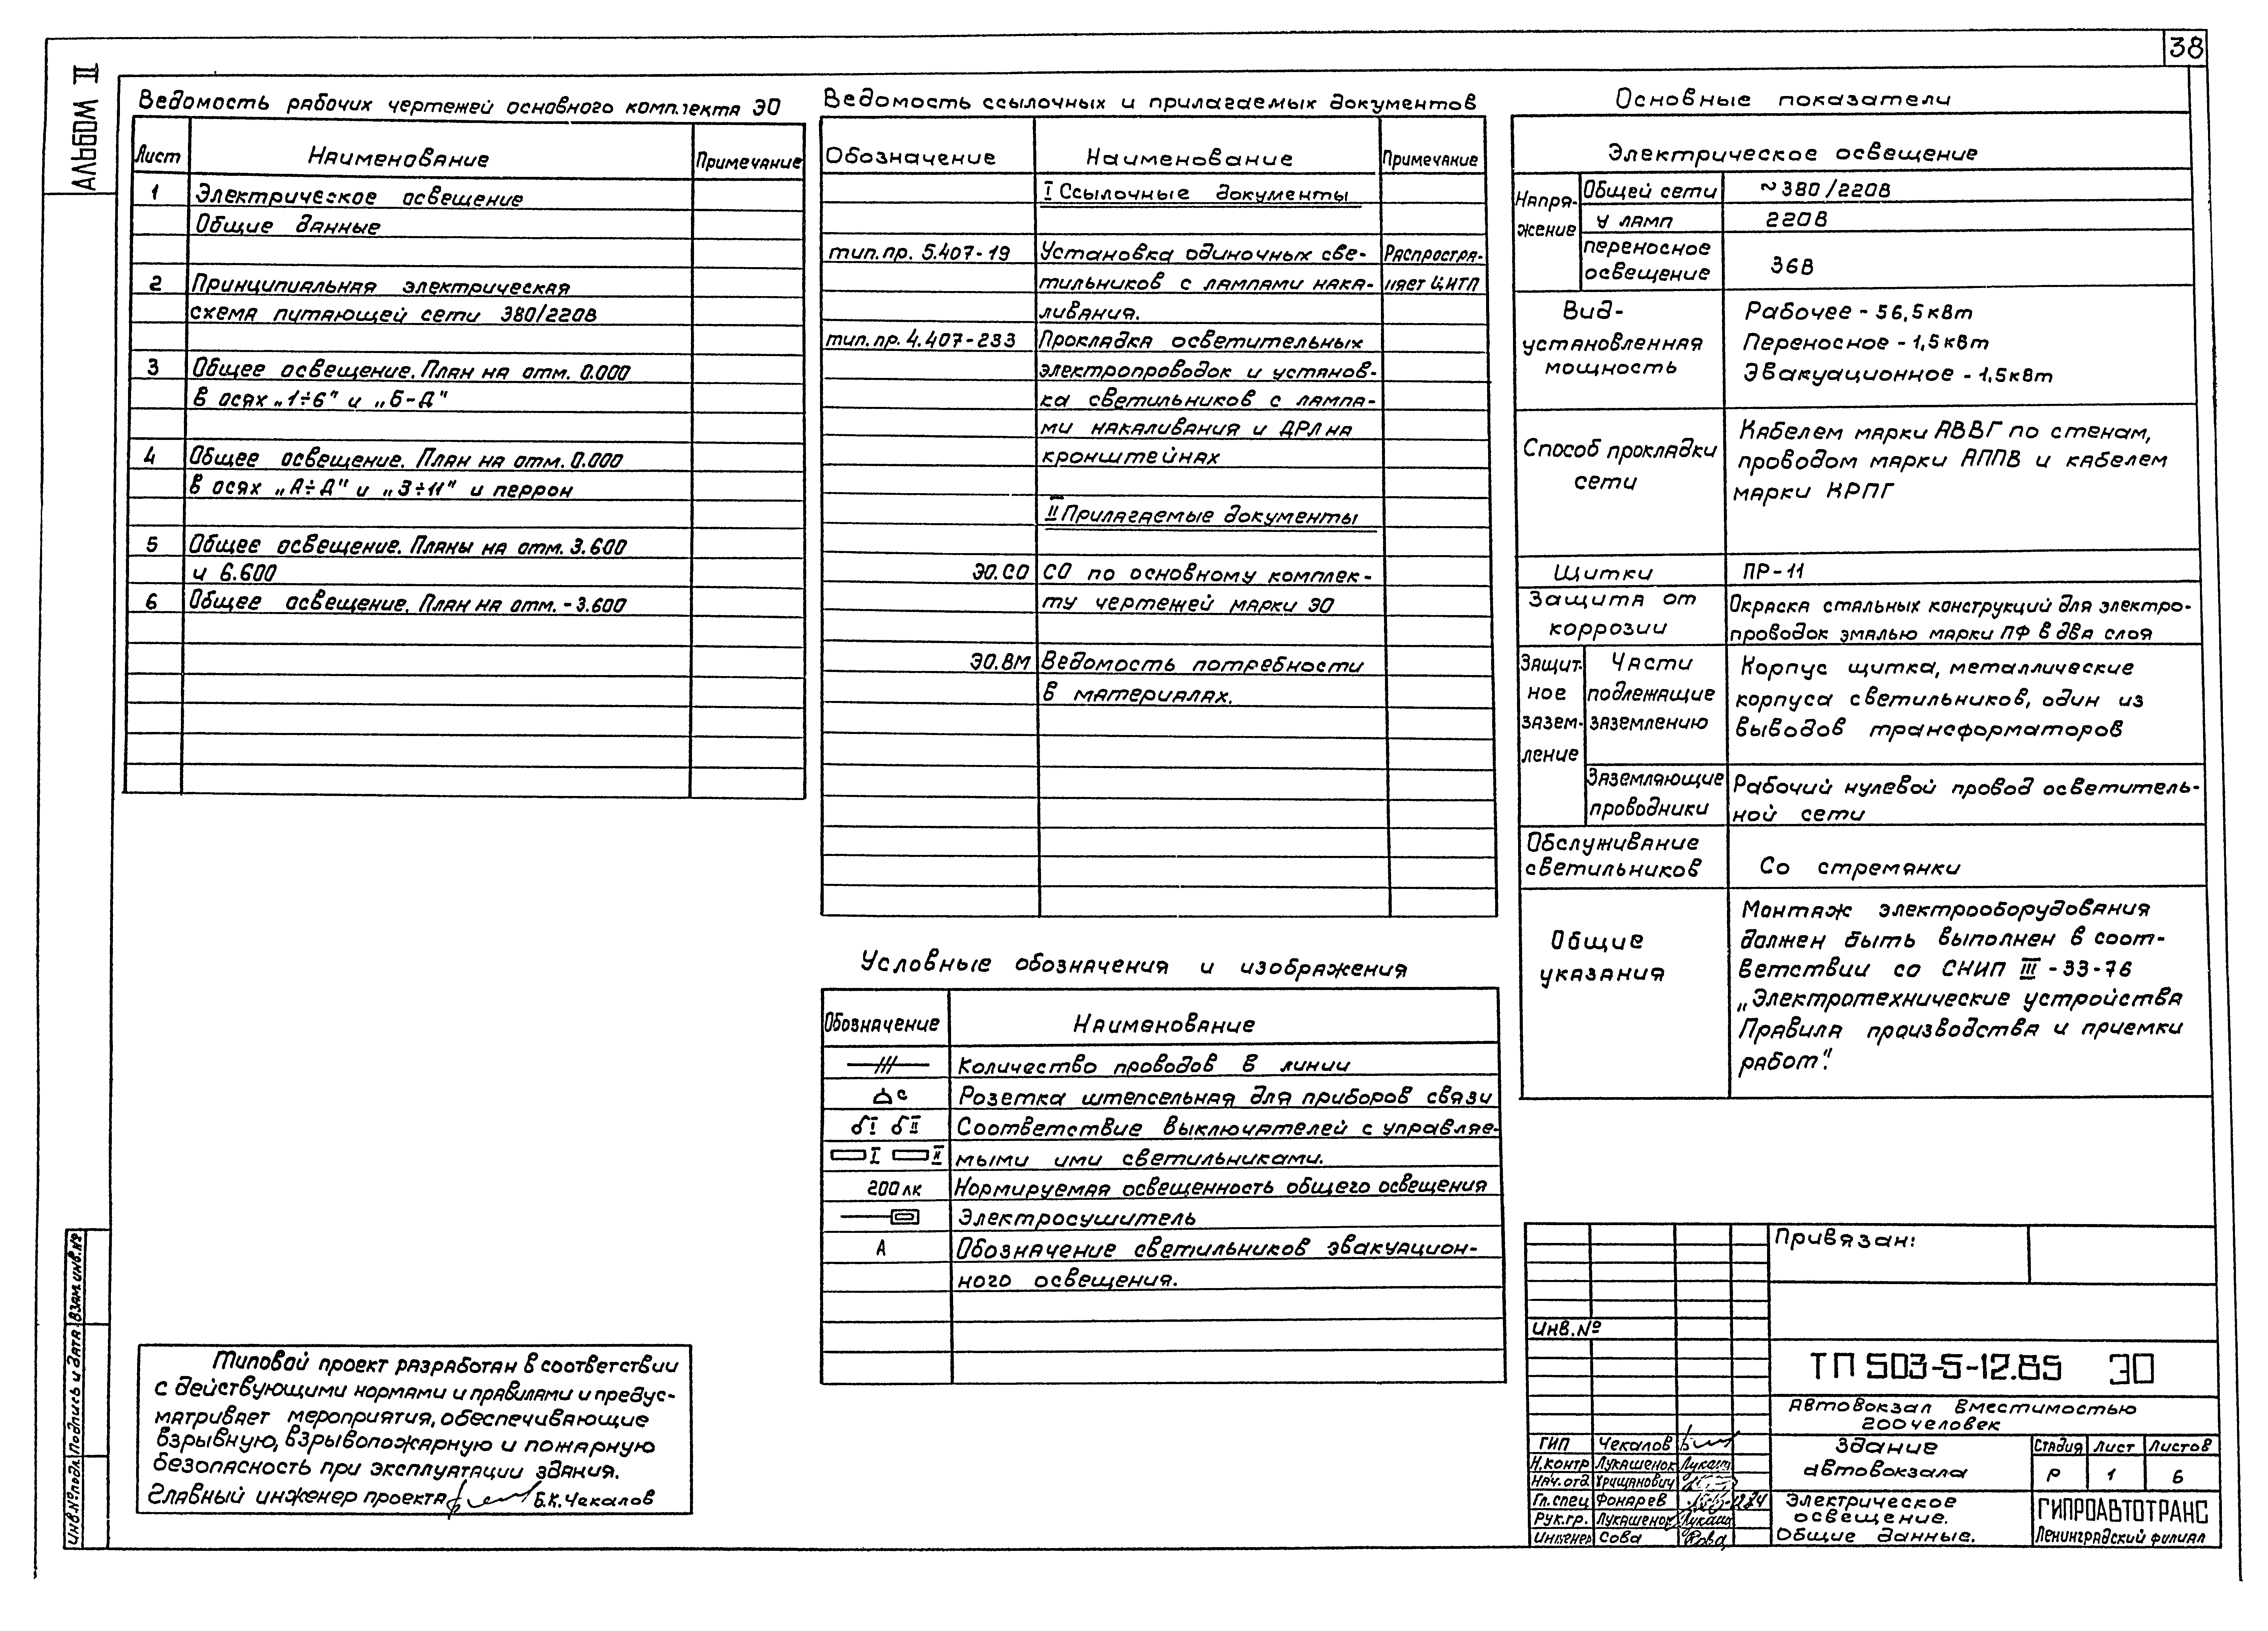 38
АЛЬБОМ II
Ведомость рабочих чертежей основного комплекта ЭО
Лист Наименование Примечание
1 Электрическое освещение
Общие данные
2 Принципиальная электрическая
схема питающей сети 380/220В
3 Общее освещение. План на отм. 0.000
в осях „1÷6" и „Б-Д"
4 Общее освещение. План на отм. 0.000
в осях „А÷Д" и „3÷11" и перрон
5 Общее освещение. Планы на отм. 3.600
и 6.600
6 Общее освещение. План на отм. -3.600
Ведомость ссылочных и прилагаемых документов
Обозначение Наименование Примечание
I Ссылочные документы
тип.пр. 5.407-19 Установка одиночных све- Распростра-
тильников с лампами нака- няет ЦИТП
ливания.
тип.пр. 4.407-233 Прокладка осветительных
электропроводок и установ-
ка светильников с лампа-
ми накаливания и ДРЛ на
кронштейнах
II Прилагаемые документы
ЭО.СО СО по основному комплек-
ту чертежей марки ЭО
ЭО.ВМ Ведомость потребности
в материалах.
Условные обозначения и изображения
Обозначение Наименование
Количество проводов в линии
с Розетка штепсельная для приборов связи
I II Соответствие выключателей с управляе-
I II мыми ими светильниками.
200 лк Нормируемая освещенность общего освещения
Электросушитель
А Обозначение светильников эвакуацион-
ного освещения.
Основные показатели
Электрическое освещение
Напря-
жение
Общей сети ~380/220В
у ламп 220В
переносное
освещение 36В
Вид-
установленная
мощность
Рабочее - 56,5кВт
Переносное - 1,5кВт
Эвакуационное - 1,5кВт
Способ прокладки
сети
Кабелем марки АВВГ по стенам,
проводом марки АППВ и кабелем
марки КРПГ
Щитки ПР-11
Защита от
коррозии
Окраска стальных конструкций для электро-
проводок эмалью марки ПФ в два слоя
Защит-
ное
зазем-
ление
Части
подлежащие
заземлению
Корпус щитка, металлические
корпуса светильников, один из
выводов трансформаторов
Заземляющие
проводники
Рабочий нулевой провод осветитель-
ной сети
Обслуживание
светильников
Со стремянки
Общие
указания
Монтаж электрооборудования
должен быть выполнен в соот-
ветствии со СНИП III-33-76
„Электротехнические устройства
Правила производства и приемки
работ".
Типовой проект разработан в соответствии
с действующими нормами и правилами и предус-
матривает мероприятия, обеспечивающие
взрывную, взрывопожарную и пожарную
безопасность при эксплуатации здания.
Главный инженер проекта Б.К.Чекалов
Взам.инв.№
Подпись и дата
Инв.№подл.
Привязан:
Инв.№
ТП 503-5-12.85 ЭО
Автовокзал вместимостью
200 человек
ГИП Чекалов
Н.контр Лукашенок
Нач.отд. Хрищанович
Гл.спец Фонарев
Рук.гр. Лукашенок
Инженер Сова
Здание
автовокзала
Стадия Лист Листов
Р 1 6
Электрическое
освещение.
Общие данные.
ГИПРОАВТОТРАНС
Ленинградский филиал